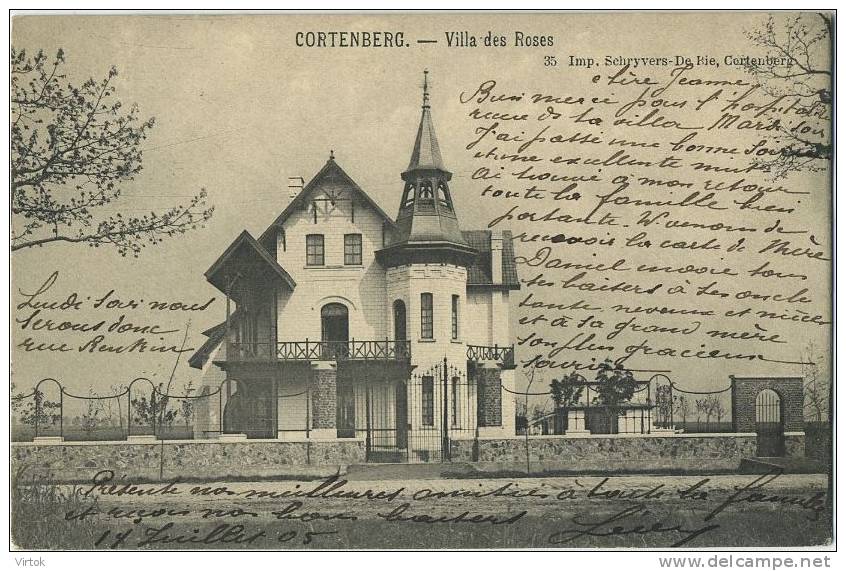 CORTENBERG. — Villa des Roses
35 Imp. Schryvers-De Bie, Cortenberg
Chère Jeanne
Bien merci pour l'hospitali
de la villa Mardi soir
J'ai passé une bonne soirée
et une excellente nuit
ai trouvé à mon retour
toute la famille bien
portante. Ns venons de
recevoir la carte de Mère
Daniel envoie tous
ses baisers à ses oncle
tante neveux et nièce
et à sa grand mère
son plus gracieux
sourire
Lundi soir nous
serons donc
rue Renkin
Présente nos meilleures amitiés à toute la famille
et reçois nos bons baisers
14 Juillet 05
Virtok
www.delcampe.net